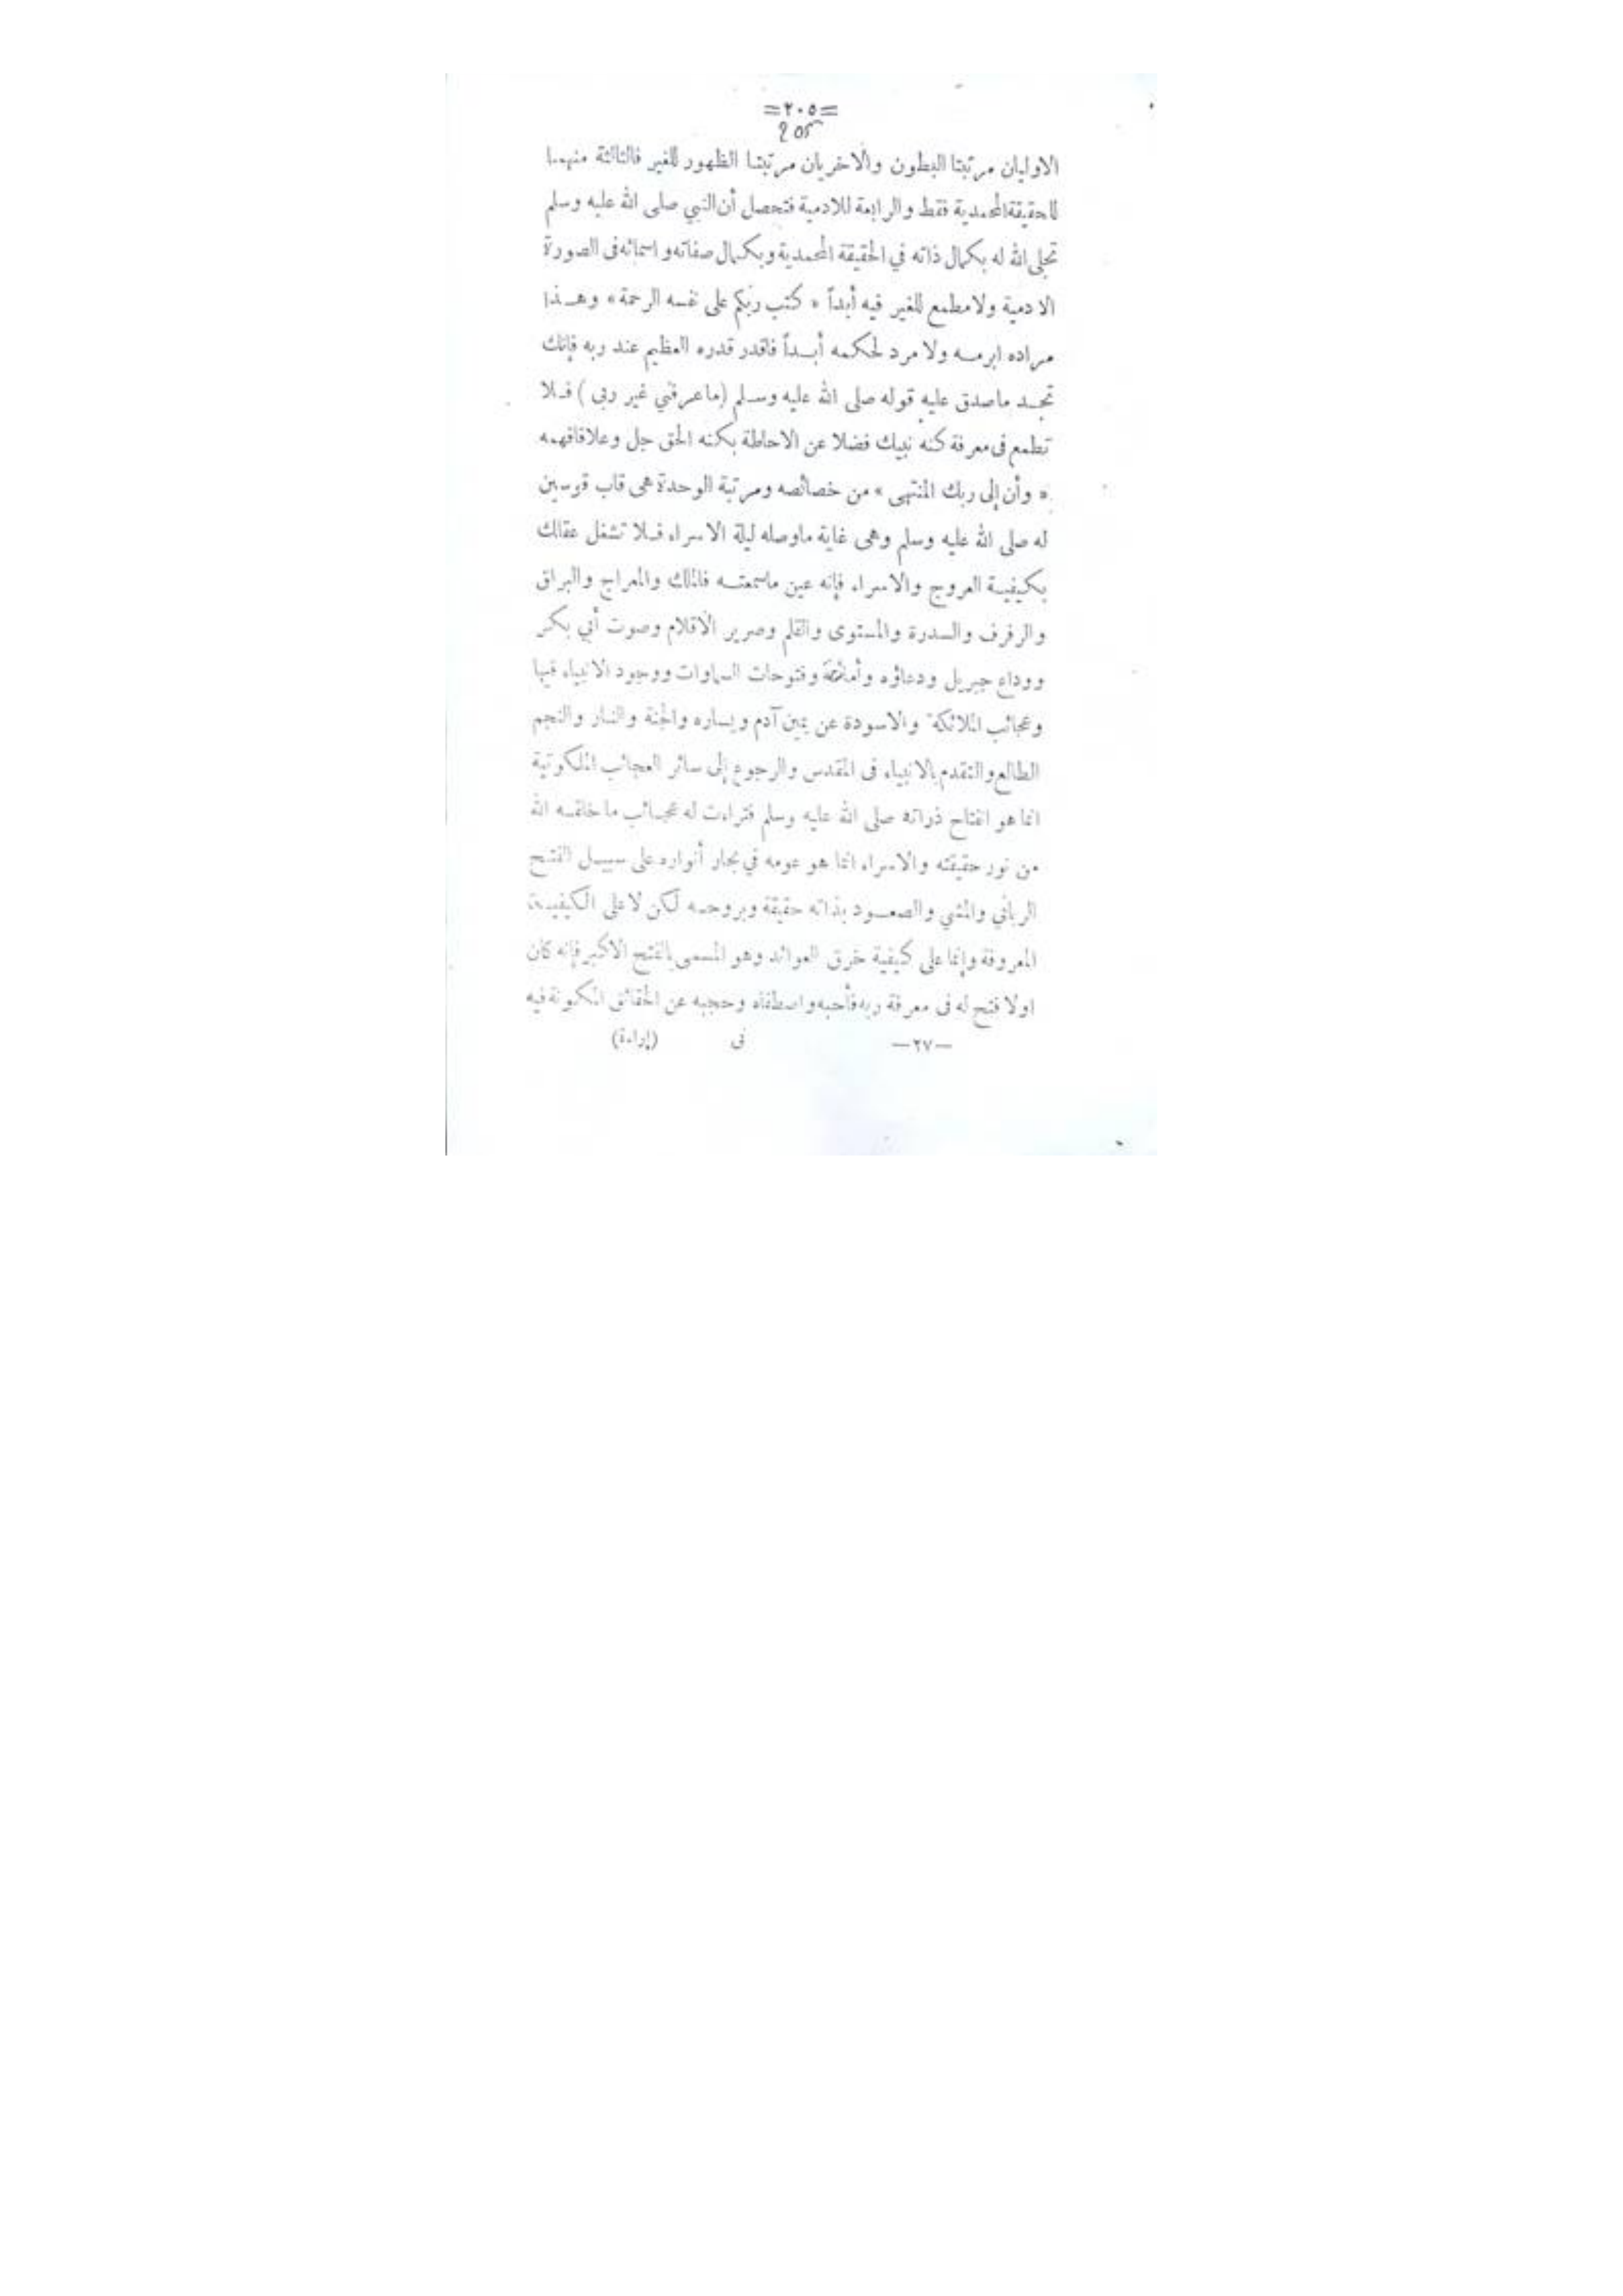 =٢٠٥=
205
الاوليان مرتبتا البطون والاخريان مرتبتا الظهور للغير فالثالثة منهما
للحقيقة المحمدية فقط والرابعة للادمية فتحصل أن النبي صلى الله عليه وسلم
تجلى الله له بكمال ذاته في الحقيقة المحمدية وبكمال صفاته واسمائه فى الصورة
الادمية ولا مطمع للغير فيه أبداً « كتب ربكم على نفسه الرحمة » وهـذا
مراده ابرمـه ولا مرد لحكمه أبـداً فاقدر قدره العظيم عند ربه فإنك
تجـد ماصدق عليه قوله صلى الله عليه وسـلم (ما عرفني غير ربى ) فـلا
تطمع فى معرفة كنه نبيك فضلا عن الاحاطة بكنه الحق جل وعلا فافهمه
« وأن إلى ربك المنتهى » من خصائصه ومرتبة الوحدة هى قاب قوسين
له صلى الله عليه وسلم وهى غاية ماوصله ليلة الاسراء فـلا تشغل عقلك
بكيفيـة العروج والاسراء فإنه عين ماسمعتـه فالملك والمعراج والبراق
والرفرف والسدرة والمستوى والقلم وصرير الاقلام وصوت أبي بكر
ووداع جبريل ودعاؤه وفتوحات السماوات ووجود الانبياء فيها
وعجائب الملائكة والاسودة عن يمين آدم ويساره والجنة والنـار والنجم
الطالع والتقدم بالانبياء فى المقدس والرجوع إلى سائر العجائب الملكوتية
انما هو انفتاح ذراته صلى الله عليه وسلم فتراءت له عجـائب ما خلقـه الله
من نور حقيقته والاسراء انما هو عومه في بحار أنواره على سبيـل الفتـح
الرباني والمشي والصعـود بذاته حقيقة وبروحـه لكن لا على الكيفيـة
المعروفة وإنما على كيفية خرق العوائد وهو المسمى بالفتح الاكبر فإنه كان
اولا فتح له فى معرفة ربه فأحبه واصطفاه وحجبه عن الحقائق المكونة فيه
—٢٧— فى (إراءة)